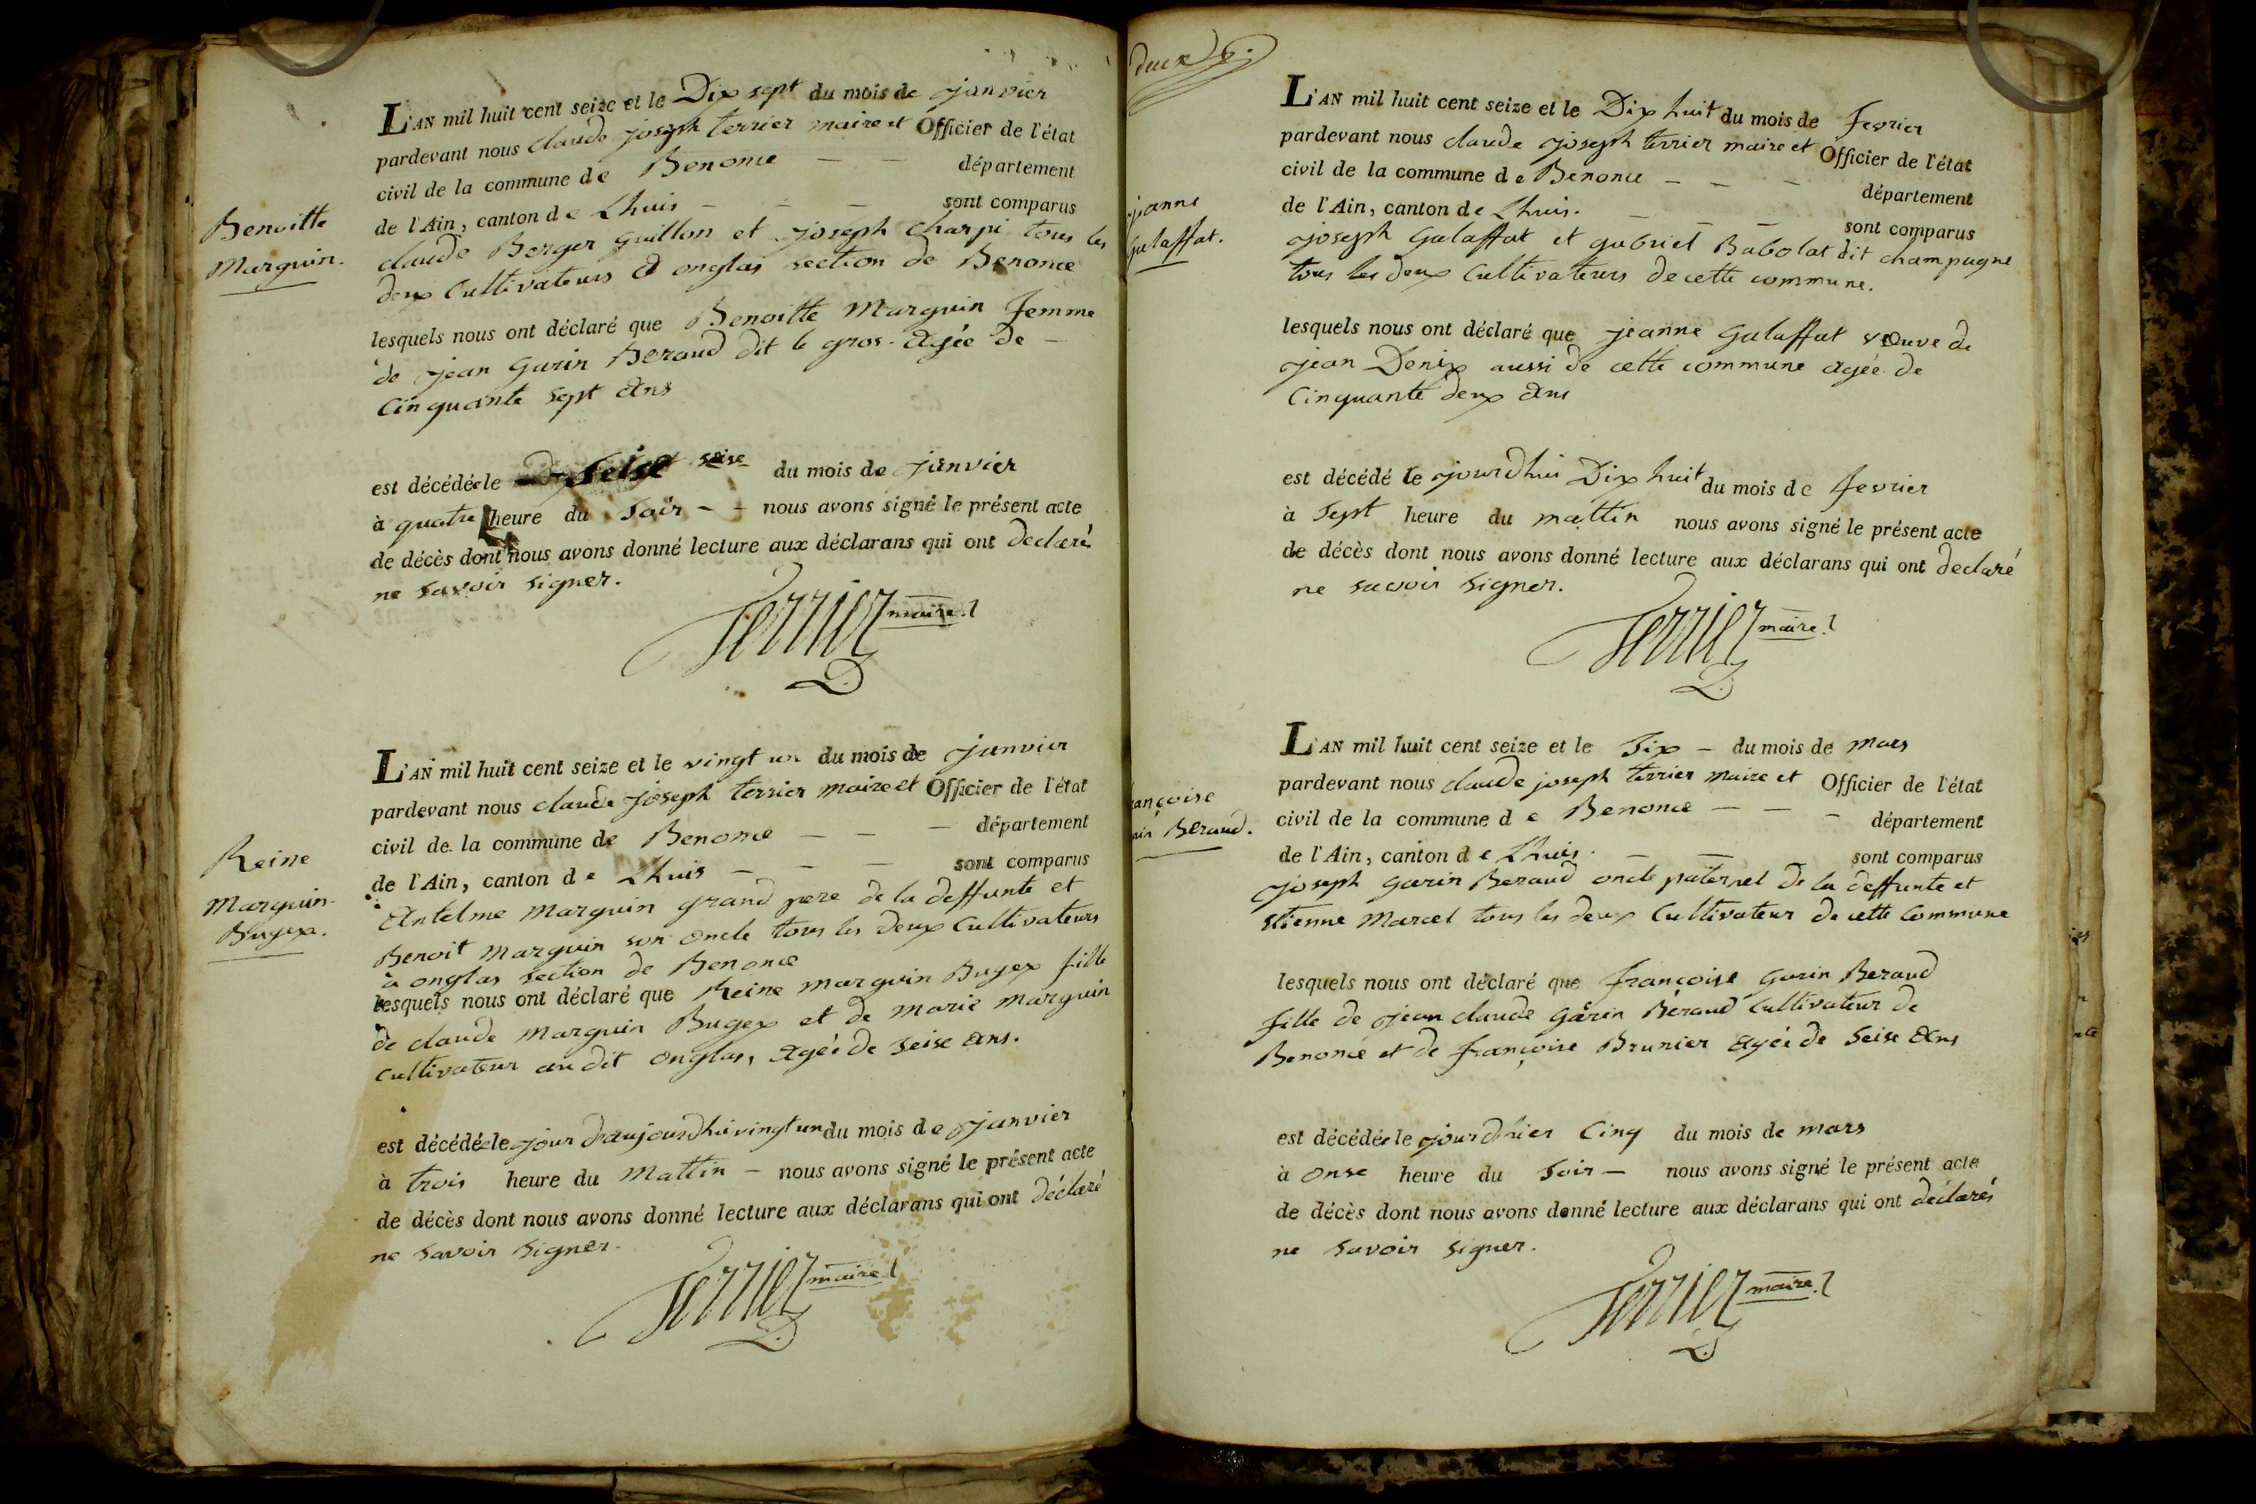 Benoitte
Marguin.
L'AN mil huit cent seize et le Dix sept du mois de janvier
pardevant nous claude joseph terrier maire et Officier de l'état
civil de la commune de Benonce — — département
de l'Ain, canton de Lhuis — — — sont comparus
claude Berger Guillon et joseph charpi tous les
deux Cultivateurs a onglas section de Benonce
lesquels nous ont déclaré que Benoitte Marguin femme
de jean Garin Beraud dit le gros. agée de —
Cinquante sept ans
est décédée le seise du mois de janvier
à quatre heure du Soir - - nous avons signé le présent acte
de décès dont nous avons donné lecture aux déclarans qui ont declaré
ne savoir signer.
Terrier maire
Reine
Marguin
Bugex.
L'AN mil huit cent seize et le vingt un du mois de janvier
pardevant nous claude joseph terrier maire et Officier de l'état
civil de la commune de Benonce — — — département
de l'Ain, canton de Lhuis — — — sont comparus
Antelme Marguin grand pere de la deffunte et
Benoit Marguin son oncle tous les deux Cultivateurs
à onglas section de Benonce
lesquels nous ont déclaré que Reine Marguin Bugex fille
de claude Marguin Bugex et de marie Marguin
Cultivateur au dit onglas, agée de seise ans.
est décédée le jour d'aujourdhui vingt un du mois de janvier
à trois heure du Mattin — nous avons signé le présent acte
de décès dont nous avons donné lecture aux déclarans qui ont déclaré
ne savoir signer.
Terrier maire
deux
janne
Galaffat.
L'AN mil huit cent seize et le Dix huit du mois de fevrier
pardevant nous claude joseph terrier maire et Officier de l'état
civil de la commune de Benonce — — — département
de l'Ain, canton de Lhuis. — — — sont comparus
joseph Galaffat et gabriel Babolat dit champagne
tous les deux Cultivateurs de cette commune.
lesquels nous ont déclaré que jeanne Galaffat veuve de
jean Denix aussi de cette commune agée de
Cinquante deux ans
est décédé le jourdhui Dix huit du mois de fevrier
à Sept heure du mattin nous avons signé le présent acte
de décès dont nous avons donné lecture aux déclarans qui ont declaré
ne savoir signer.
Terrier maire
ançoise
Beraud.
L'AN mil huit cent seize et le Six — du mois de mars
pardevant nous claude joseph terrier maire et Officier de l'état
civil de la commune de Benonce — — — département
de l'Ain, canton de Lhuis. — — sont comparus
joseph Garin Beraud oncle paternel de la deffunte et
Etienne Marcel tous les deux Cultivateur de cette Commune
lesquels nous ont déclaré que françoise Garin Beraud
fille de jean claude Garin Béraud Cultivateur de
Benonce et de françoise Brunier agée de Seise ans
est décédée le jour dhier Cinq du mois de mars
à onse heure du Soir — nous avons signé le présent acte
de décès dont nous avons donné lecture aux déclarans qui ont déclarés
ne savoir signer.
Terrier maire